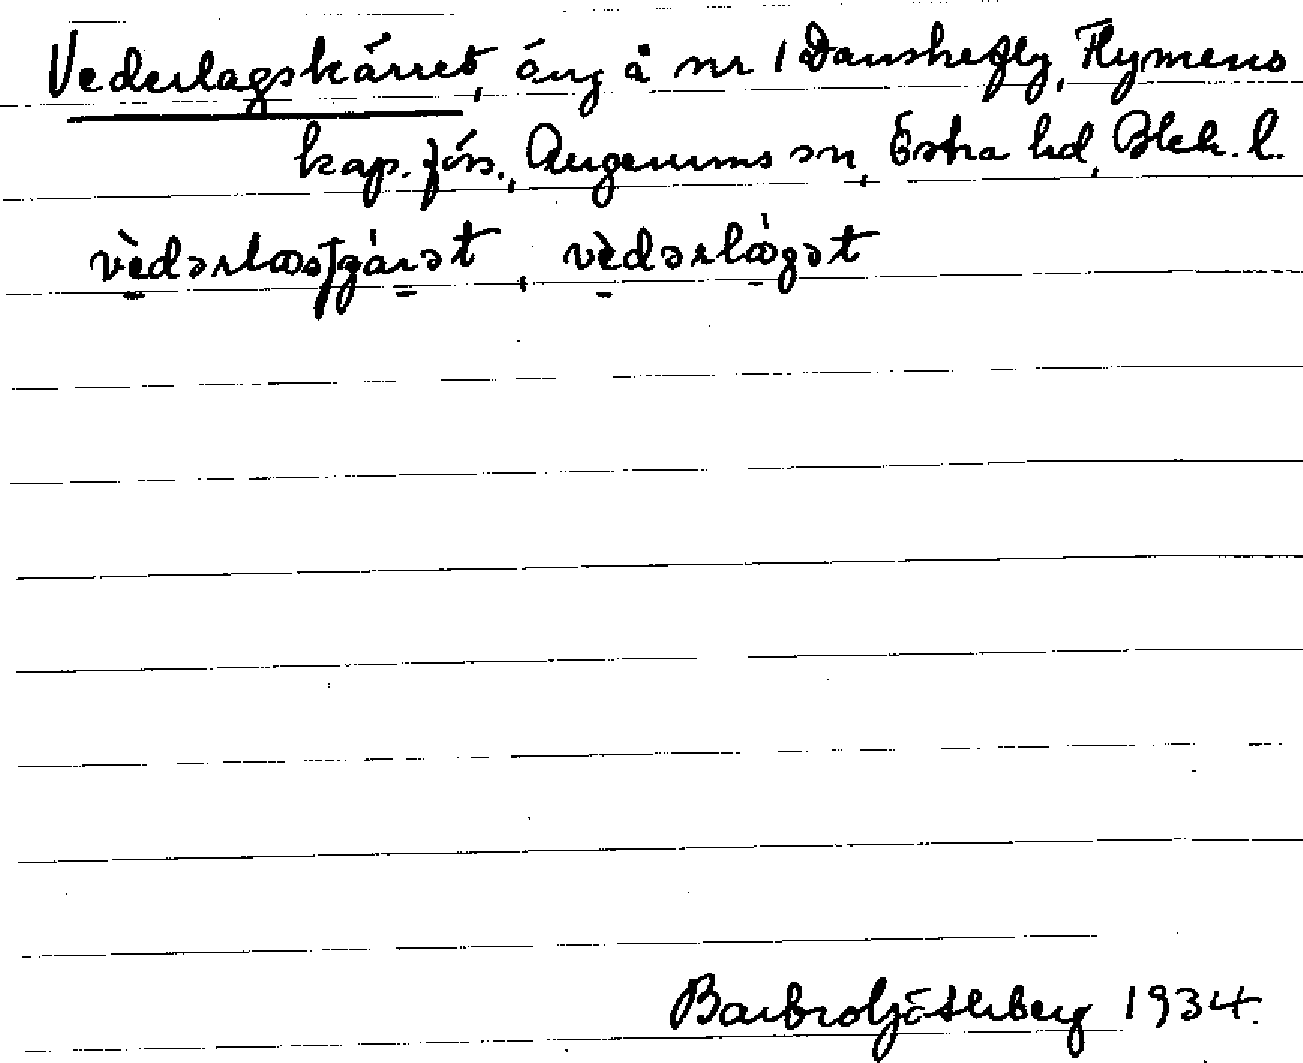 Vederlagskärret, äng å nr 1 Danskefly, Flymens
kap. förs., Augerums sn, Östra hd, Blek. l.
vèdərlasʃgárət, vèdərlàgət
Barbro Götherberg 1934.